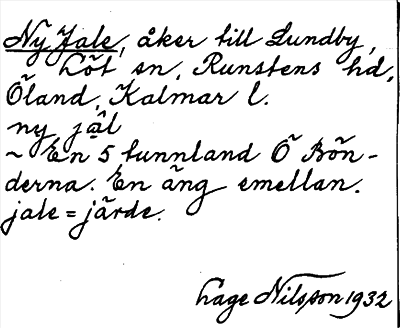 Ny Jale, åker till Lundby,
Löt sn, Runstens hd,
Öland, Kalmar l.
ny jäl
~ En 5 tunnland Ö Bön-
derna. En äng emellan.
jale = järde.
Lage Nilsson 1932